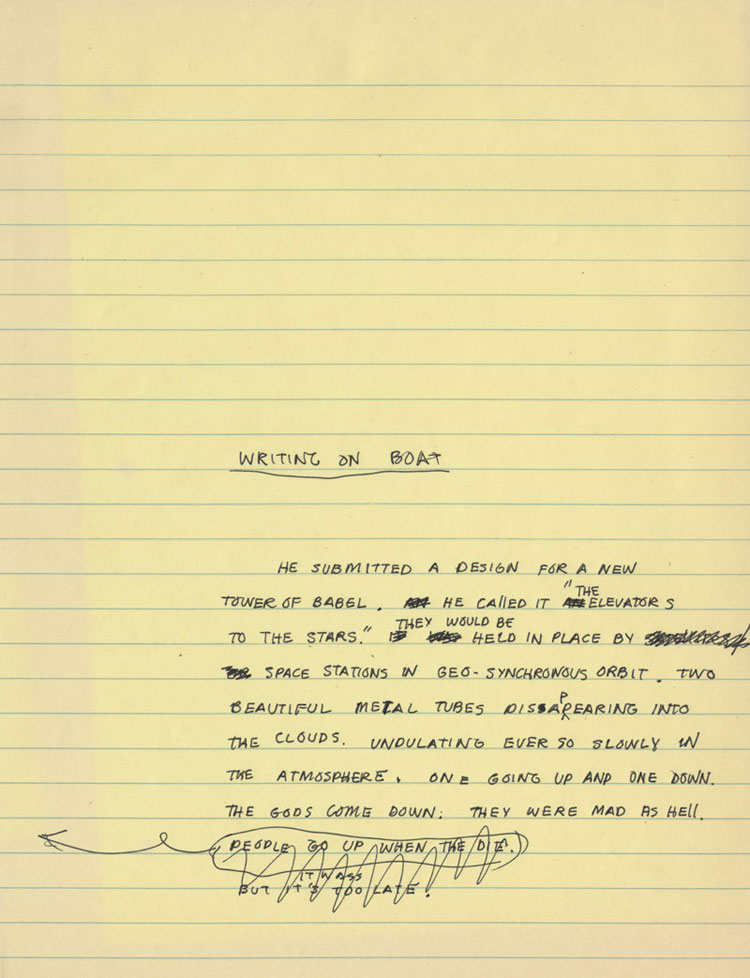 WRITING ON BOAT
HE SUBMITTED A DESIGN FOR A NEW
TOWER OF BABEL. HE CALLED IT "THE ELEVATORS
TO THE STARS." THEY WOULD BE HELD IN PLACE BY
SPACE STATIONS IN GEO-SYNCHRONOUS ORBIT. TWO
BEAUTIFUL METAL TUBES DISSAPPEARING INTO
THE CLOUDS. UNDULATING EVER SO SLOWLY IN
THE ATMOSPHERE. ONE GOING UP AND ONE DOWN.
THE GODS COME DOWN: THEY WERE MAD AS HELL.
PEOPLE GO UP WHEN THE DIE.
IT WAS
BUT IT'S TOO LATE.